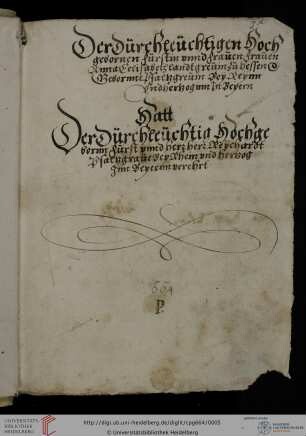 Der Dürchleüchtigen Hoch
gebornen Fürstin vnnd Frauen Frauen
Anna Elisabetz Landtgreuin zu Hessen
Gebornne Pfaltzgreuin Bey Rein
Vnd Hertzogin in Beyern
Hatt
Der Dürchleüchtig Hochge
born Fürst vnnd herr herr Reychardt
Pfaltzgraue Bey Rhein vnd Hertzog
Inn Beyernn verehrt
664
P
UNIVERSITÄTS-
BIBLIOTHEK
HEIDELBERG
http://digi.ub.uni-heidelberg.de/diglit/cpg664/0005
© Universitätsbibliothek Heidelberg